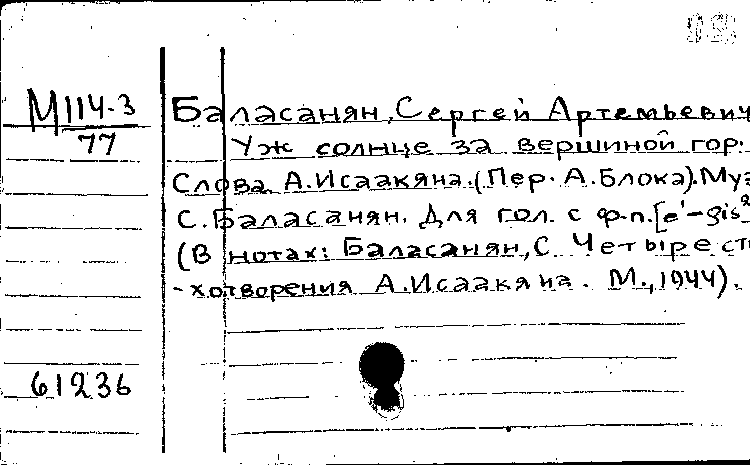 М114-3
77
Баласанян, Сергей Артемьевич
Уж солнце за вершиной гор.
Слова А.Исаакяна.(Пер. А.Блока).Муз
С.Баласанян. Для гол. с ф.п.[e'-gis²
(В нотах: Баласанян,С. Четыре сти
-хотворения А.Исаакяна. М.,1944).
61236